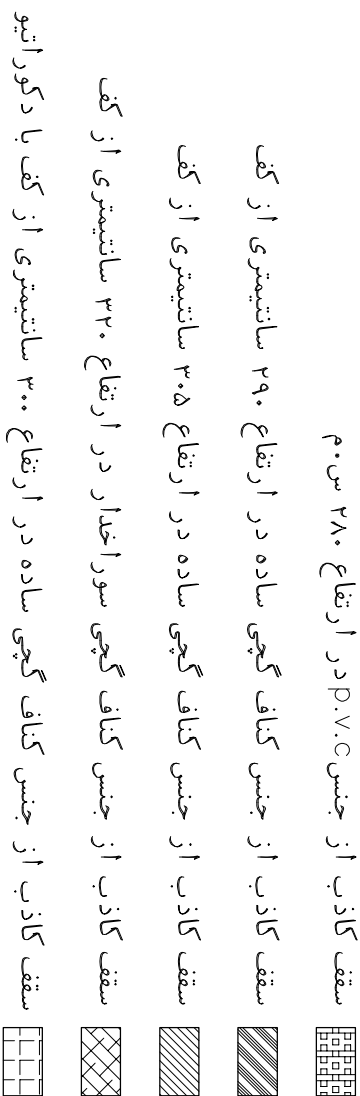 سقف کاذب از جنس p.v.c در ارتفاع ۲۸۰ س.م
سقف کاذب از جنس کناف گچی ساده در ارتفاع ۲۹۰ سانتیمتری از کف
سقف کاذب از جنس کناف گچی ساده در ارتفاع ۳۰۵ سانتیمتری از کف
سقف کاذب از جنس کناف گچی سوراخدار در ارتفاع ۳۲۰ سانتیمتری از کف
سقف کاذب از جنس کناف گچی ساده در ارتفاع ۳۰۰ سانتیمتری از کف با دکوراتیو